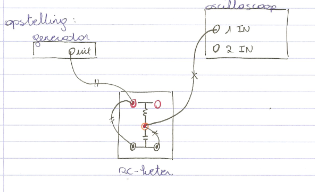 opstelling:
generator
uit
oscilloscoop
1 IN
2 IN
RC-keten